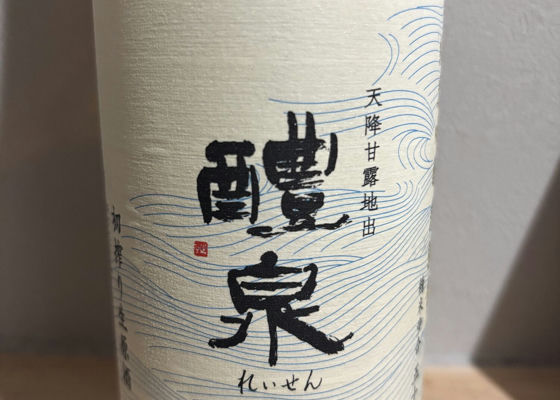 天降甘露地出
醴泉
れいせん
初搾り生原酒